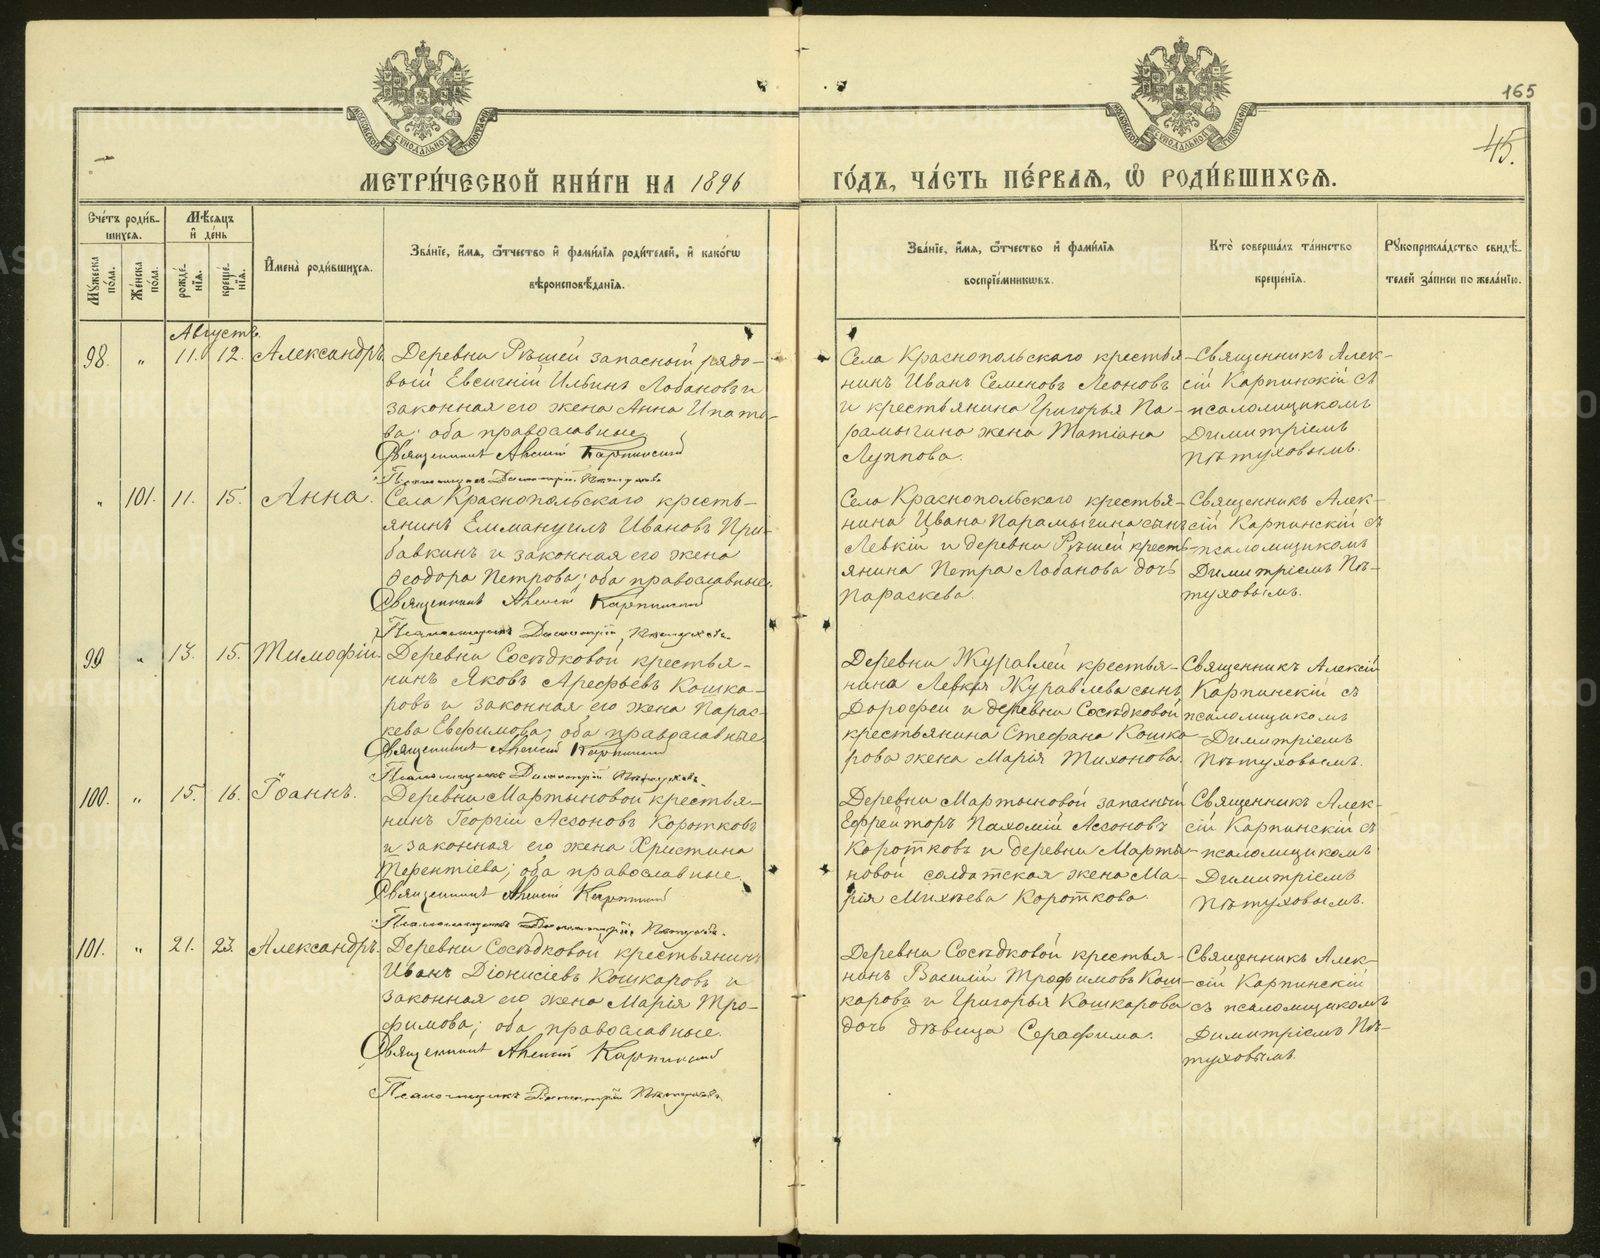 165
45.
МЕТРИ́ЧЕСКОЙ КНИ́ГИ НА 1896
ГО́ДЪ, ЧА́СТЬ ПЕ́РВАѦ, Ѡ҆ РОДИ́ВШИХСѦ.
Сче́тъ роди́в-
шихсѧ.
Мѣ́сѧцъ
и҆ де́нь
Мꙋ́жеска по́ла.
Же́нска по́ла.
рожде́нїѧ.
креще́нїѧ.
И҆мена̀ роди́вшихсѧ.
Зва́нїе, и҆́мѧ, ѻ҆́тчество и҆ фами́лїѧ роди́телей, и҆ како́гѡ
вѣроисповѣ́данїѧ.
Зва́нїе, и҆́мѧ, ѻ҆́тчество и҆ фами́лїѧ
воспрїе́мникѡвъ.
Кто̀ соверша́лъ та́инство
креще́нїѧ.
Рꙋкоприкла́дство свидѣ́-
телей за́писи по жела́нїю.
Августъ.
98. " 11. 12. Александръ.
Деревни Рѣшей запасный рядо-
вой Евсигній Ильинъ Лобановъ и
законная его жена Анна Ипато-
ва; оба православные
Священникъ Алексій Карпинскій
Псаломщикъ Димитрій Пѣтуховъ
Села Краснопольскаго крестья-
нинъ Иванъ Семеновъ Леоновъ
и крестьянина Григорья Па-
рамыгина жена Татіана
Луппова.
Священникъ Алек-
сій Карпинскій съ
псаломщикомъ
Димитріемъ
Пѣтуховымъ.
" 101. 11. 15. Анна.
Села Краснопольскаго кресть-
янинъ Еммануилъ Ивановъ При-
бавкинъ и законная его жена
Ѳеодора Петрова; оба православные.
Священникъ Алексій Карпинскій
Псаломщикъ Димитрій Пѣтуховъ.
Села Краснопольскаго крестья-
нина Ивана Парамыгина сынъ
Левкій и деревни Рѣшей кресть-
янина Петра Лобанова дочь
Параскева.
Священникъ Алек-
сій Карпинскій съ
псаломщикомъ
Димитріемъ Пѣ-
туховымъ.
99 " 13. 15. Тимофій.
Деревни Сосѣдковой крестья-
нинъ Яковъ Арефьевъ Кошка-
ровъ и законная его жена Парас-
кева Евфимова; оба православные
Священникъ Алексій Карпинскій
Псаломщикъ Димитрій Пѣтуховъ
Деревни Журавлей крестья-
нина Левкія Журавлева сынъ
Дорофеи и деревни Сосѣдковой
крестьянина Стефана Кошка-
рова жена Марія Тихонова.
Священникъ Алексій
Карпинскій съ
псаломщикомъ
Димитріемъ
Пѣтуховымъ.
100. " 15. 16. Іоаннъ.
Деревни Мартыновой крестья-
нинъ Георгій Асоновъ Коротковъ
и законная его жена Христина
Терентіева; оба православные.
Священникъ Алексій Карпинскій
Псаломщикъ Димитрій Пѣтуховъ.
Деревни Мартыновой запасный
Ефрейторъ Пахомій Асоновъ
Коротковъ и деревни Марты-
новой солдатская жена Ма-
рія Михѣева Короткова.
Священникъ Алек-
сій Карпинскій съ
псаломщикомъ
Димитріемъ
Пѣтуховымъ.
101. " 21. 23. Александръ.
Деревни Сосѣдковой крестьянинъ
Иванъ Діонисіевъ Кошкаровъ и
законная его жена Марія Тро-
фимова; оба православные.
Священникъ Алексій Карпинскій
Псаломщикъ Димитрій Пѣтуховъ.
Деревни Сосѣдковой крестья-
нинъ Василій Трофимовъ Кош-
каровъ и Григорья Кошкарова
дочь дѣвица Серафима.
Священникъ Алек-
сій Карпинскій
съ псаломщикомъ
Димитріемъ Пѣ-
туховымъ.
METRIKI.GASO-URAL.RU